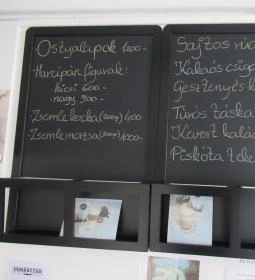 Ostyalapok 1200.-
Marcipán figurák:
- kicsi 600.-
- nagy 900.-
Zsemle kocka (200g) 400
Zsemlemorzsa (200g) 1000.-
Sajtos
Kakaós csiga
Gesztenyés
Túrós táska
Kevert kalács
Piskóta